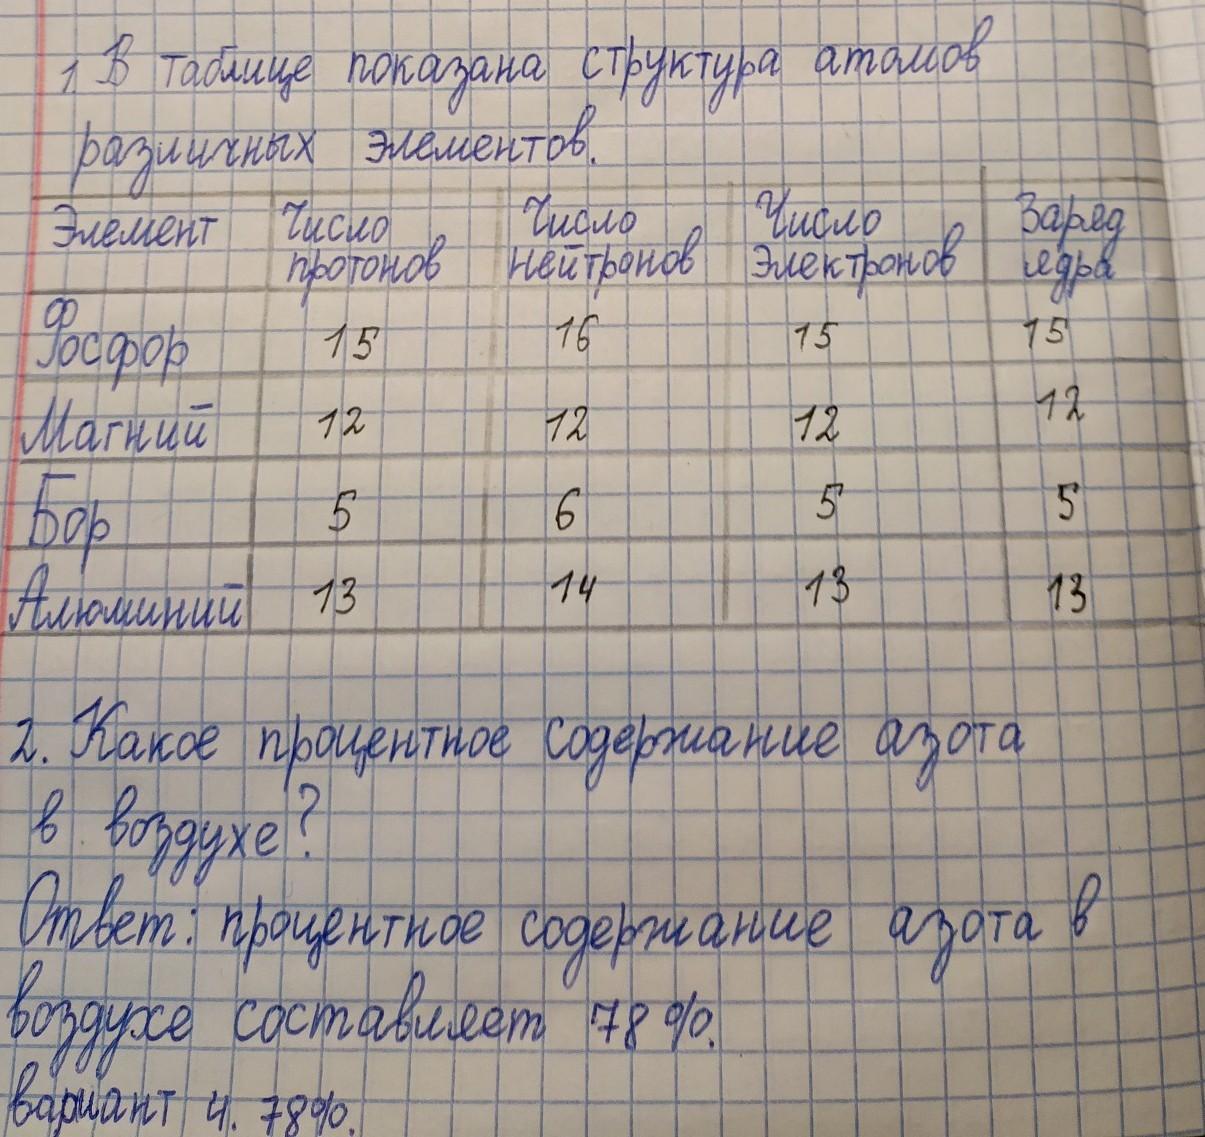 1. В таблице показана структура атомов
различных элементов.
Элемент Число протонов Число нейтронов Число электронов Заряд ядра
Фосфор 15 16 15 15
Магний 12 12 12 12
Бор 5 6 5 5
Алюминий 13 14 13 13
2. Какое процентное содержание азота
в воздухе?
Ответ: процентное содержание азота в
воздухе составляет 78%.
вариант 4. 78%.